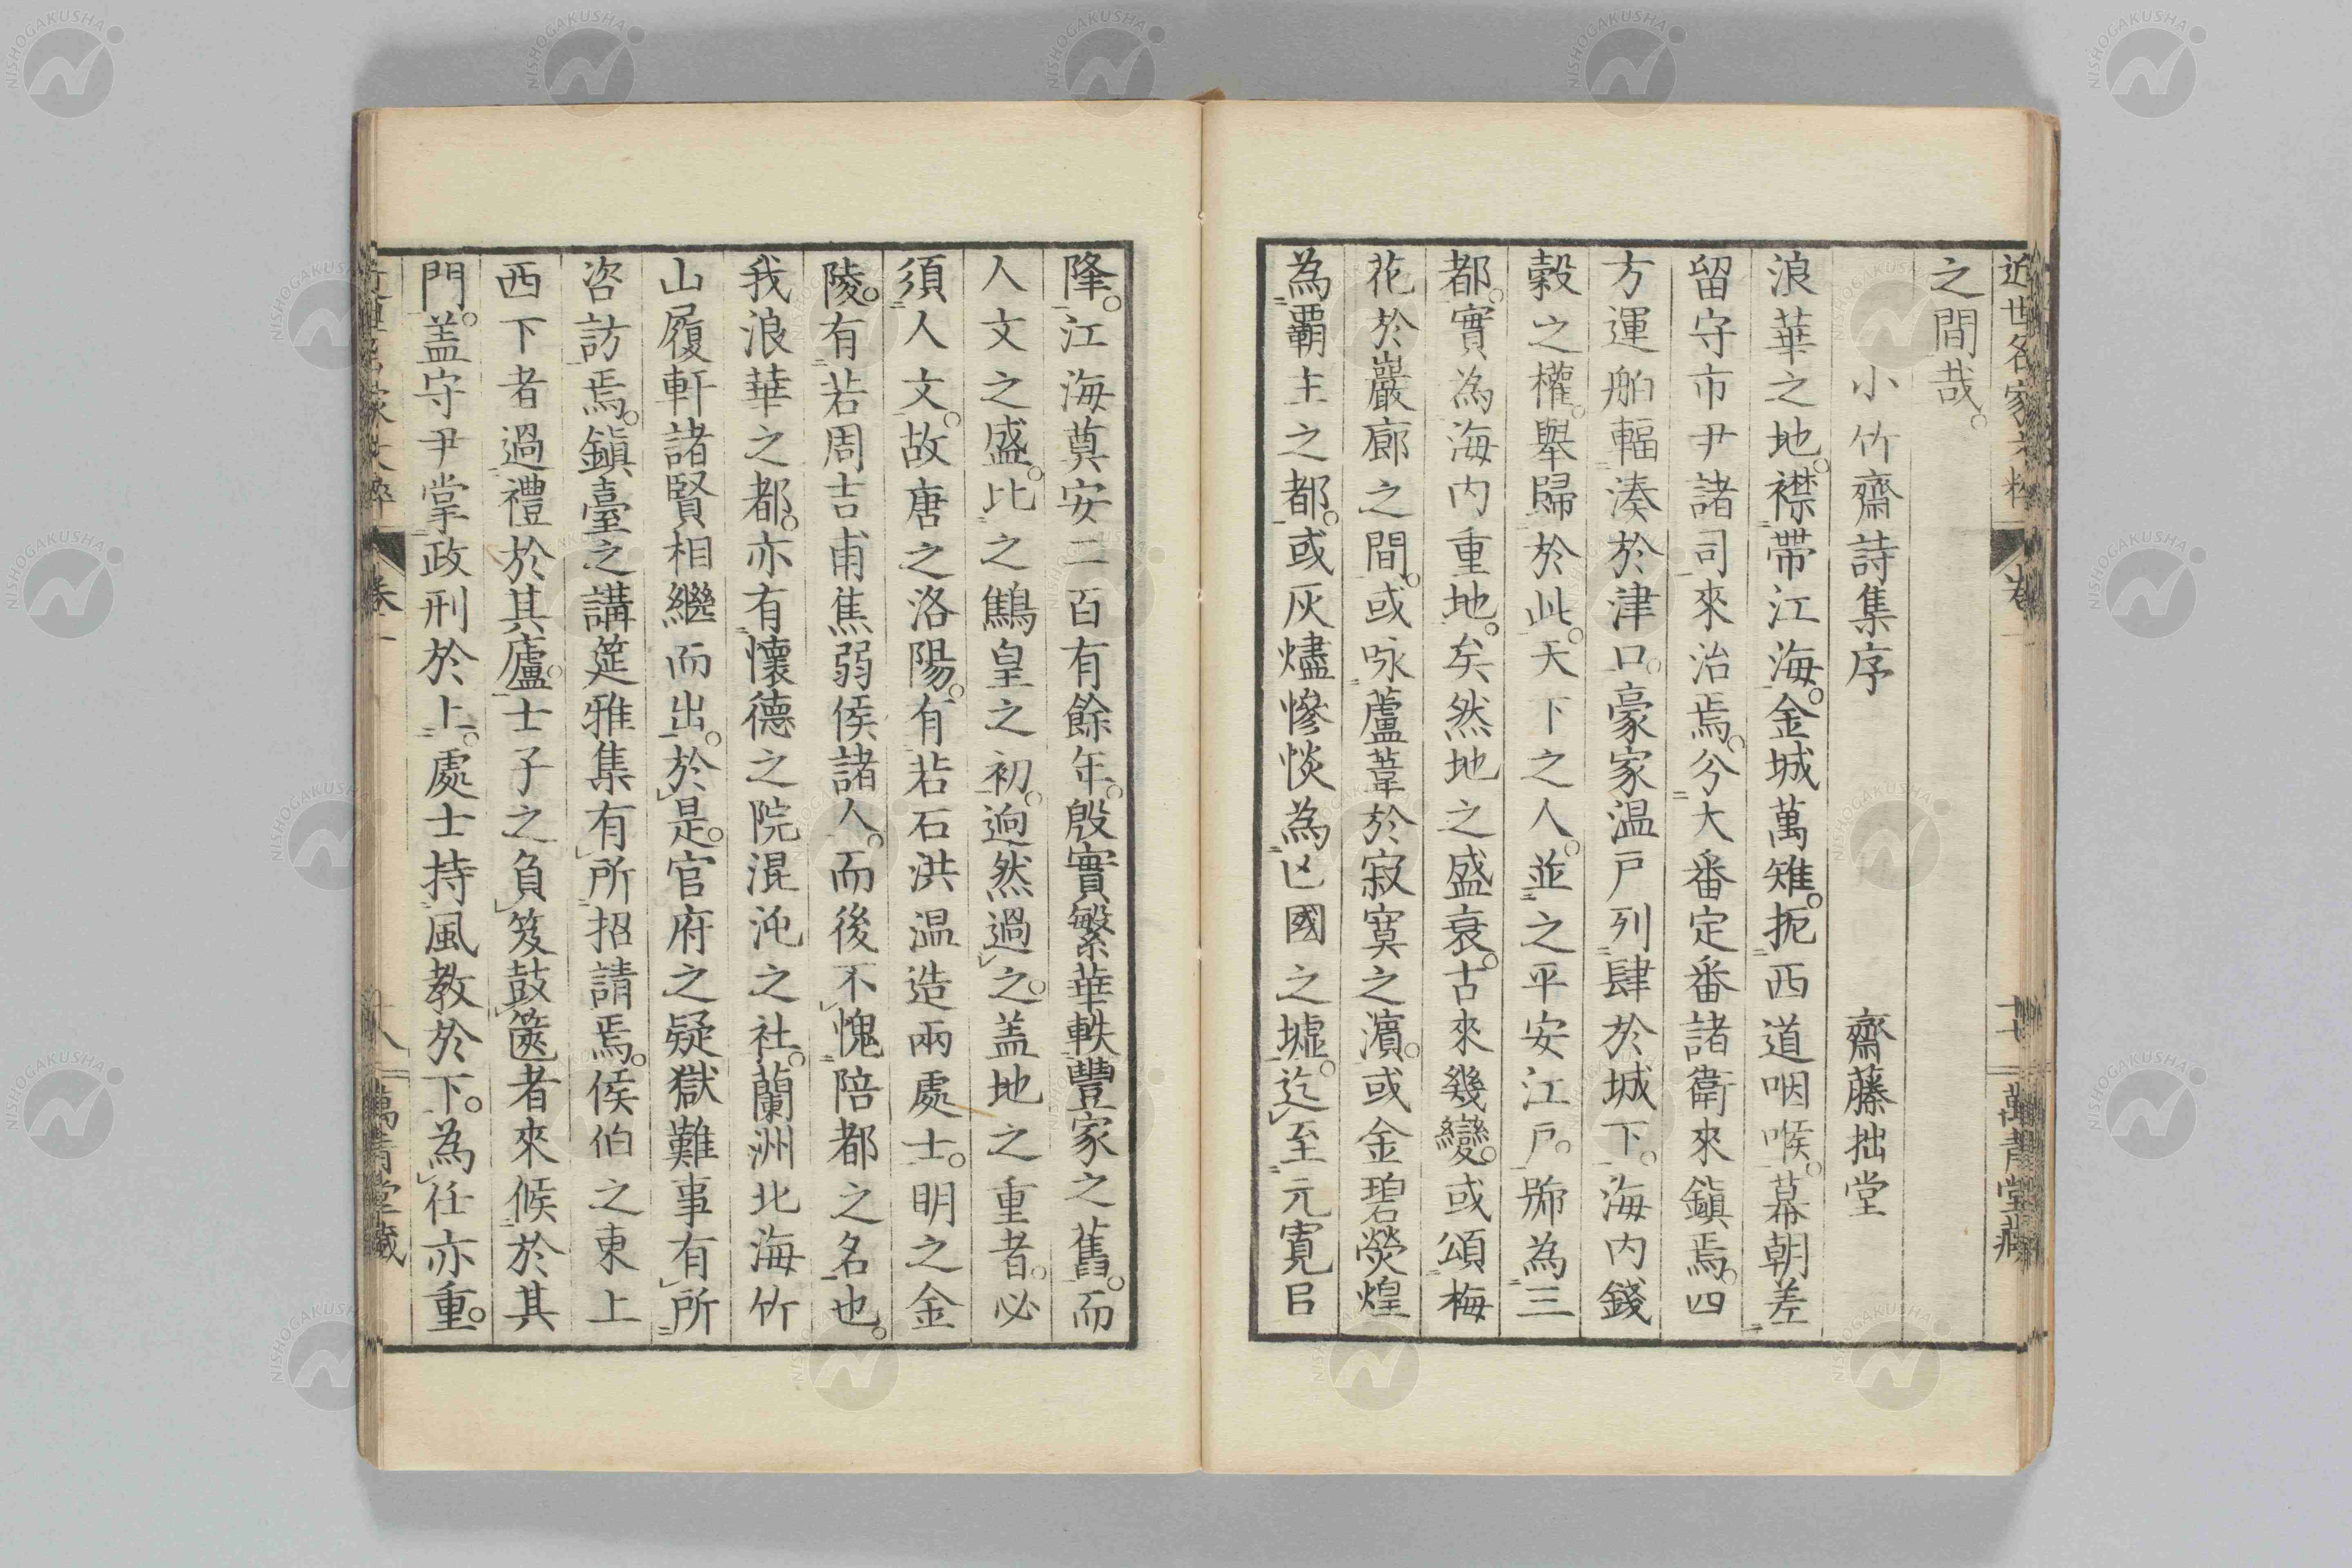 近世名家文粹 卷一 十七 萬青堂藏
之間哉。
小竹齋詩集序 齋藤拙堂
浪華之地。襟帶江海。金城萬雉。扼西道咽喉。幕朝差
留守市尹諸司來治焉。分大番定番諸衛來鎭焉。四
方運舶輻湊於津口。豪家温戸列肆於城下。海内錢
穀之權。舉歸於此。天下之人。並之平安江戸。號為三
都。實為海内重地矣。然地之盛衰。古來幾變。或頌梅
花於巖廊之間。或咏蘆葦於寂寞之濵。或金碧熒煌
為覇主之都。或灰燼慘惔為亾國之墟。迄至元寛㠯
隆。江海奠安二百有餘年。殷實繁華軼豐家之舊。而
人文之盛。比之鷦皇之初。逈然過之。盖地之重者。必
須人文。故唐之洛陽。有若石洪温造兩處士。明之金
陵。有若周吉甫焦弱侯諸人。而後不愧陪都之名也。
我浪華之都。亦有懷德之院混沌之社。蘭洲北海竹
山履軒諸賢相繼而出。於是。官府之疑獄難事有所
咨訪焉。鎭臺之講筵雅集有所招請焉。侯伯之東上
西下者過禮於其廬。士子之負笈鼓篋者來候於其
門。盖守尹掌政刑於上。處士持風教於下。為任亦重。
近世名家文粹 卷一 十八 萬青堂藏